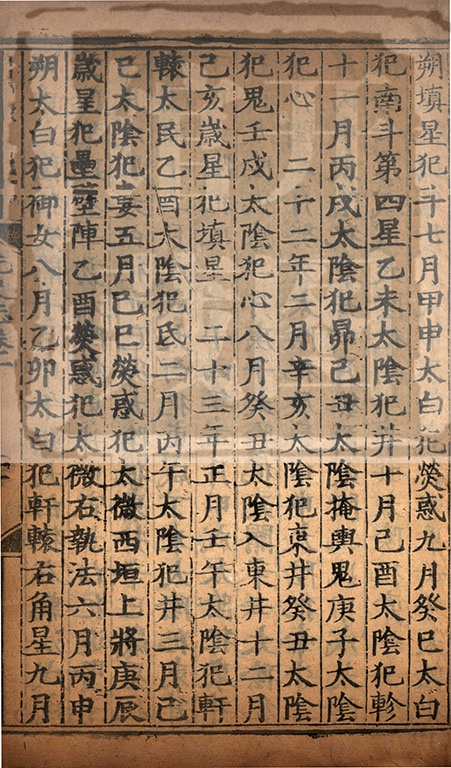 朔填星犯斗七月甲申太白犯熒惑九月癸巳太白
犯南斗第四星乙未太陰犯井十月己酉太陰犯軫
十一月丙戌太陰犯昴己丑太陰掩輿鬼庚子太陰
犯心 二十二年二月辛亥太陰犯東井癸丑太陰
犯鬼壬戌太陰犯心八月癸丑太陰入東井十二月
己亥歲星犯填星 二十三年正月壬午太陰犯軒
轅太民乙酉太陰犯氐二月丙午太陰犯井三月己
巳太陰犯婁五月己巳熒惑犯太微西垣上將庚辰
歲星犯壘壁陣乙酉熒惑犯太微右執法六月丙申
朔太白犯御女八月乙卯太白犯軒轅右角星九月